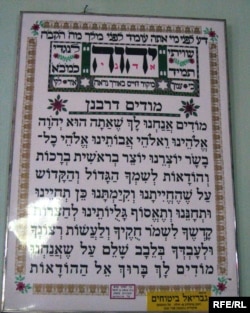 דע לפני מי אתה עומד לפני מלך מה הקבה
שויתי יהוה לנגדי
תמיד
מודים דרבנן
מודים אנחנו לך שאתה הוא יהוה
אלהינו ואלהי אבותינו אלהי כל־
בשר יוצרנו יוצר בראשית ברכות
והודאות לשמך הגדול והקדוש
על שהחייתנו וקיימתנו כן תחיינו
ותחננו ותאסוף גליותינו לחצרות
קדשך לשמר חקיך ולעשות רצונך
ולעבדך בלבב שלם על שאנחנו
מודים לך ברוך אל ההודאות
גבריאל ביטוחים
RFE/RL